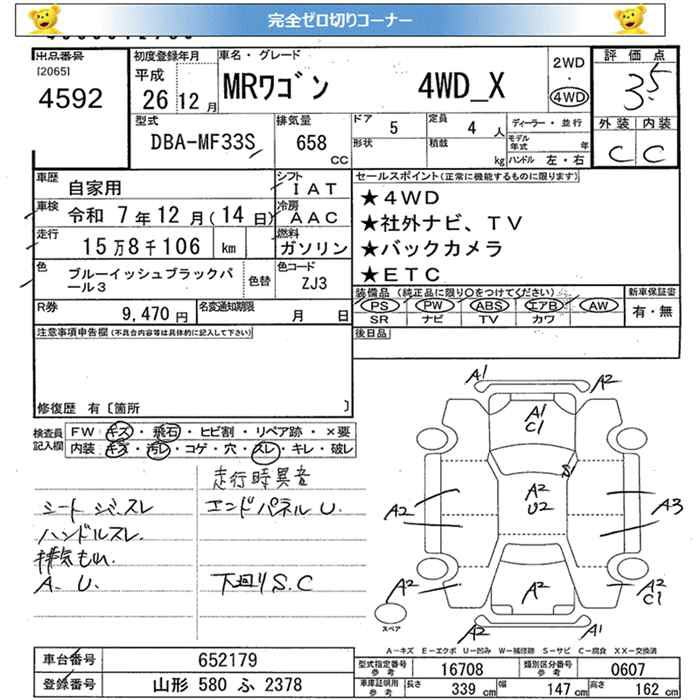 完全ゼロ切りコーナー
出品番号
[2065]
4592
初度登録年月
平成
26 12 月
車名・グレード
MRワゴン 4WD_X
2WD
・
4WD
評価点
3.5
外装 内装
C C
型式
DBA-MF33S
排気量
658
cc
ドア 5
定員 4 人
形状
積載 kg
ディーラー・並行
モデル年式 年
ハンドル 左・右
車歴 自家用
シフト IAT
車検 令和 7年12月(14日)
冷房 AAC
走行 15万8千106 km
燃料 ガソリン
色 ブルーイッシュブラックパール3
色替
色コード ZJ3
R券 9,470 円
名変通知期限 月 日
セールスポイント(正常に機能するものに限ります)
★4WD
★社外ナビ、TV
★バックカメラ
★ETC
装備品 (純正品に限り〇をつけてください)
PS PW ABS エアB AW
SR ナビ TV カワ
新車保証書
有・無
後日品
注意事項申告欄(不具合内容等は具体的に記入して下さい)
修復歴 有〔箇所 〕
検査員記入欄
FW キズ・飛石・ヒビ割・リペア跡・×要
内装 キズ・汚レ・コゲ・穴・スレ・キレ・破レ
走行時異音
シート シミ.スレ エンドパネル U.
ハンドルスレ.
排気もれ.
A. U. 下廻り S.C
A1 A2
A1
C1
S
A2
U2
A2 A3
A2 A2 A2
C1
A2 A1
スペア
A-キズ E-エクボ U-凹み W-補修跡 S-サビ C-腐食 XX-交換済
車台番号 652179
登録番号 山形 580 ふ 2378
型式指定番号 参考 16708
類別区分番号 参考 0607
車庫証明用 参考 長さ 339 cm 幅 147 cm 高さ 162 cm